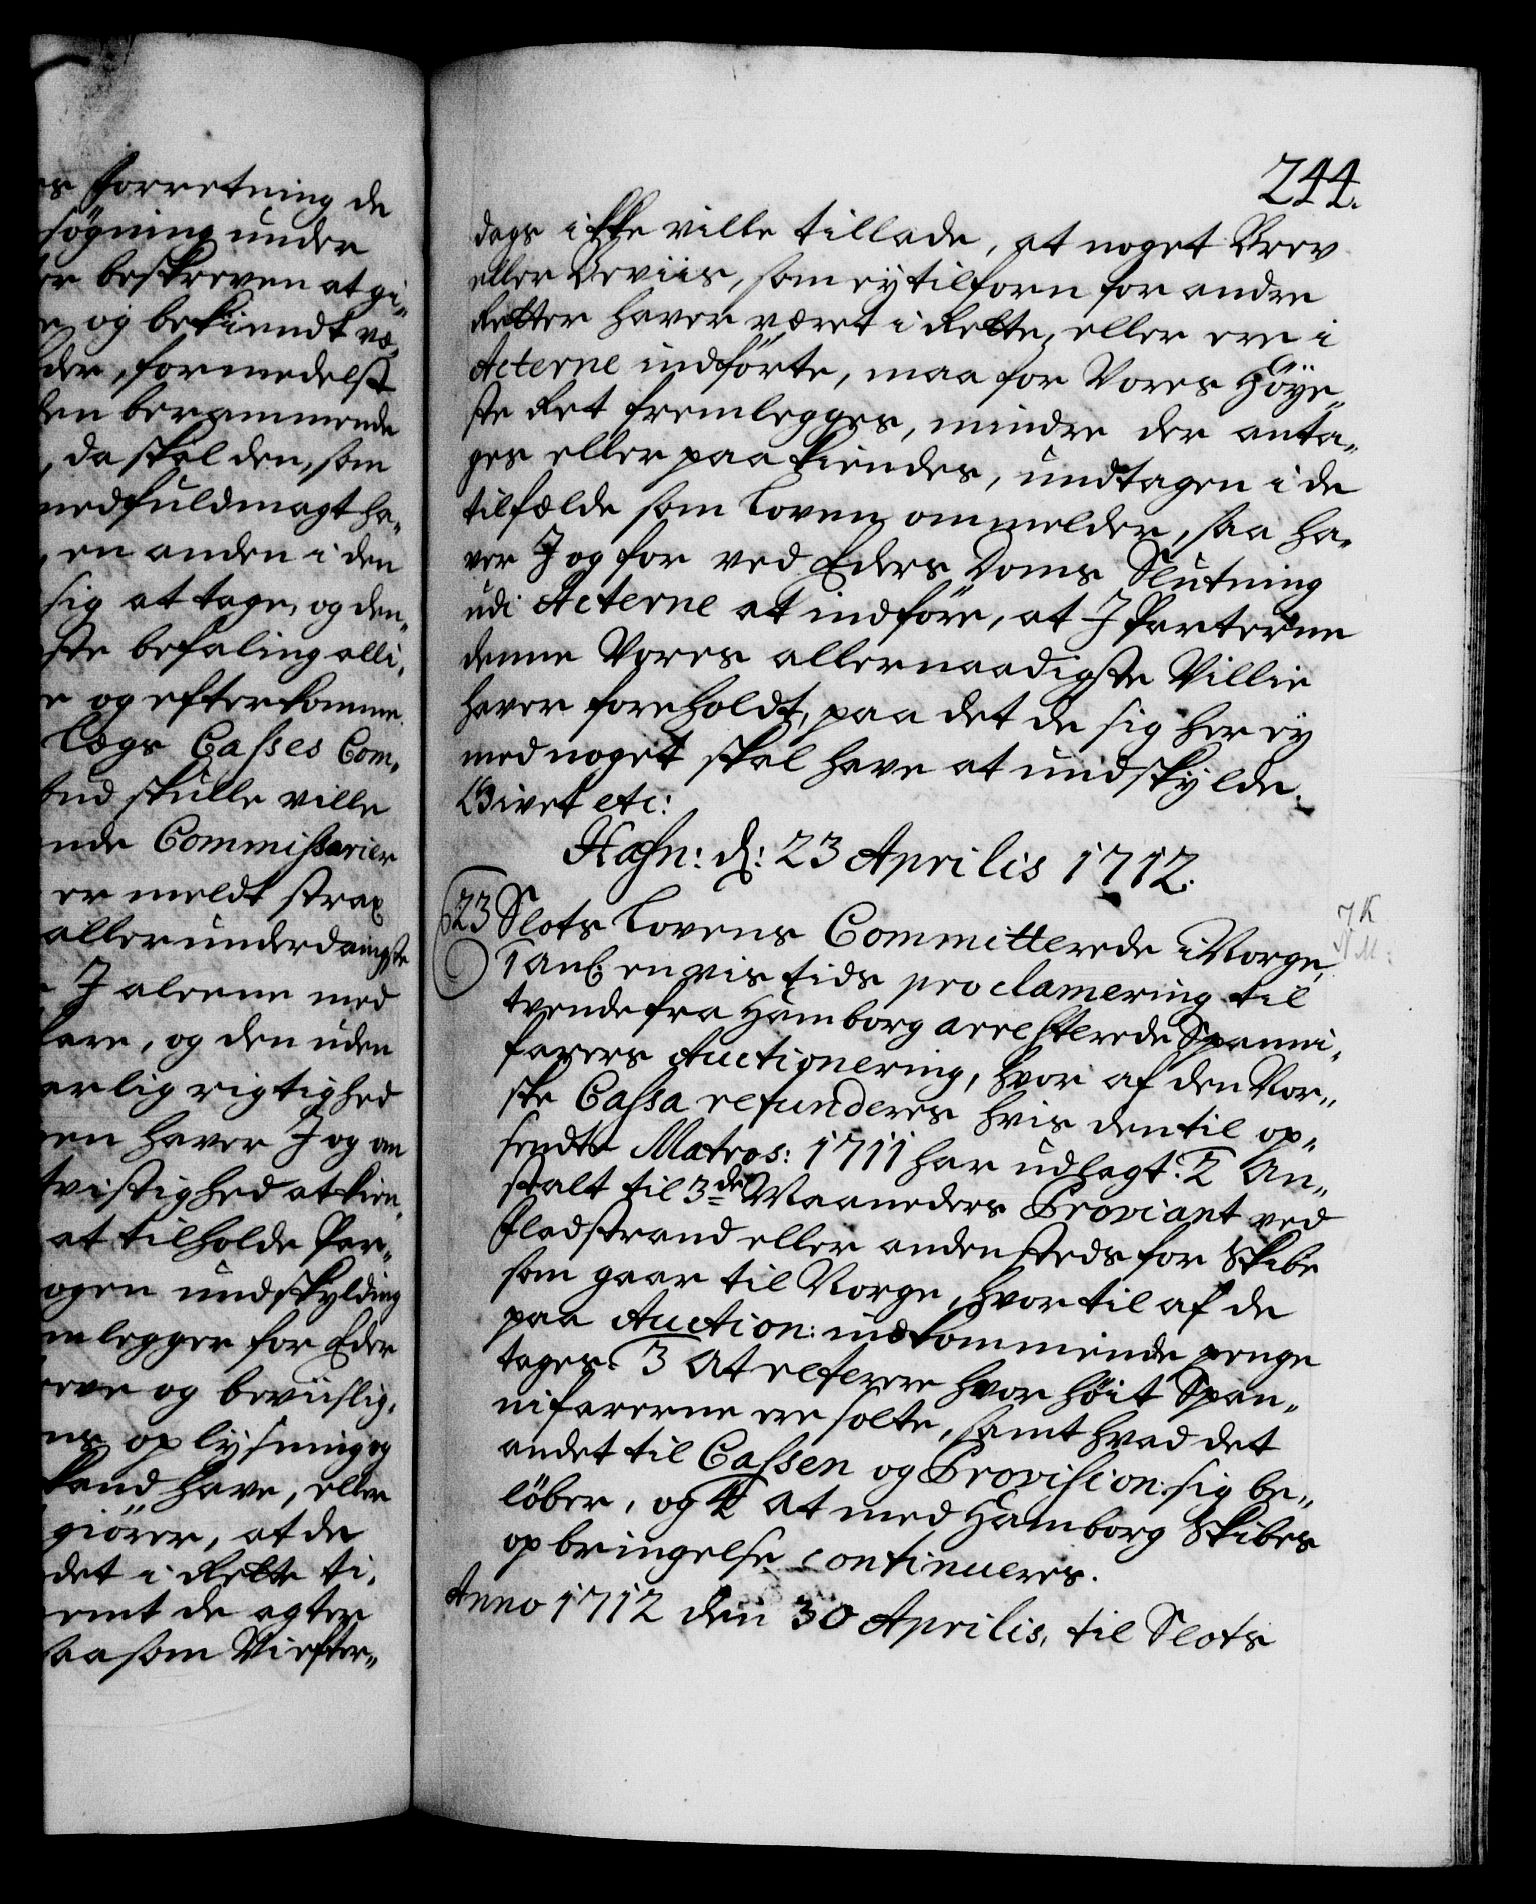 es forretning de
søgning under
er beskreven at gi„
e og bekiendt væ„
der, formedelst
den berammende
, da skal den, som
med fuldmagt ha„
, en anden i den
sig at tage, og den„
ste befaling alli„
e og efterkomme.
Lægs Casses Com„
bud skulle ville
nde Commissarier
er meldt strax
allerunderdanigste
J aleene med
fare, og den uden
erlig rigtighed
en haver J og an
tvistighed at kien„
at tilholde Par„
ogen undskylding
mlegger for Eder
eve og beviislig„
ns oplysning og
kand have, eller
giører, at de
det i Rette ti„
emt de agter
saasom Vi efter„
244.
dags icke ville tillade, at noget Brev
eller Beviis, som ey tilforn for andre
Retter haver været i Rette, eller ere i
Acterne indførte, maa for Vores Høye„
ste Ret fremlegges, mindre der anta„
ges eller paakiendes, undtagen i de
tilfælde som Loven ommelder, saa ha„
ver J og for ved Eders Doms Slutning
udi Acterne at indføre, at J Parterne
denne Vores allernaadigste Villie
haver foreholdt, paa det de sig her ey
med noget skal have at undskylde.
Givet etc:
Hafn: d: 23 Aprilis 1712.
23 Slots Lovens Committerede i Norge,
1 anl. en vis tids proclamering til
tvende fra Hamborg arresterede Spanni„
farers Auctionering, hvor af den Nor„
ske Cassa refunderes hvis den til op„
sendte Matros: 1711 har udlagt. 2 An„
stalt til 3de Maaneders Proviant ved
Fladstrand eller andensteds for Skibe
som gaar til Norge, hvortil af de
paa Auction: indkommende penge
tages. 3 At referere hvor høit Span„
nifarerne ere solte, samt hvad det
andet til Cassen og Provision: sig be„
løber, og 4 at med Hamborg Skibes
opbringelse continueres.
Anno 1712 den 30 Aprilis, til Slots